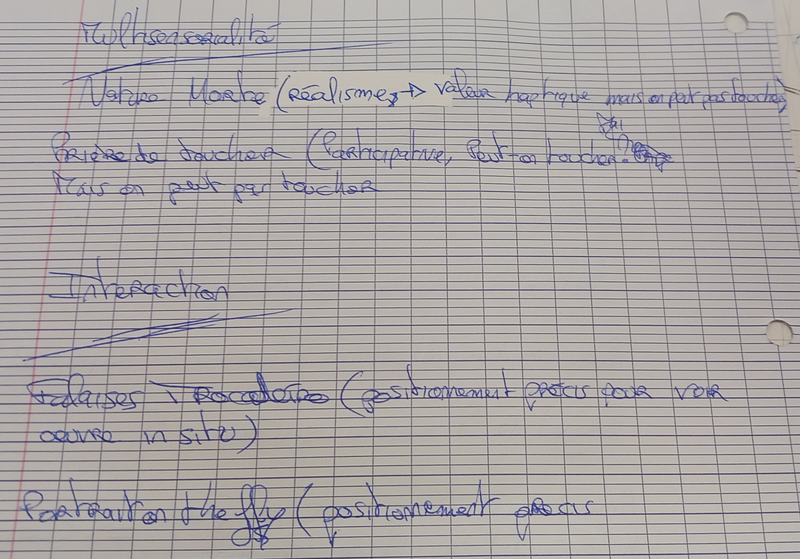 Multisensorialité
Nature Morte (Réalisme, → valeur haptique mais on peut pas toucher)
Prière de toucher (Participative, Peut-on toucher ?
Mais on peut pas toucher
Interaction
Falaises Trocadéro (positionnement précis pour voir
oeuvre in situ)
Portrait on the fly (positionnement précis